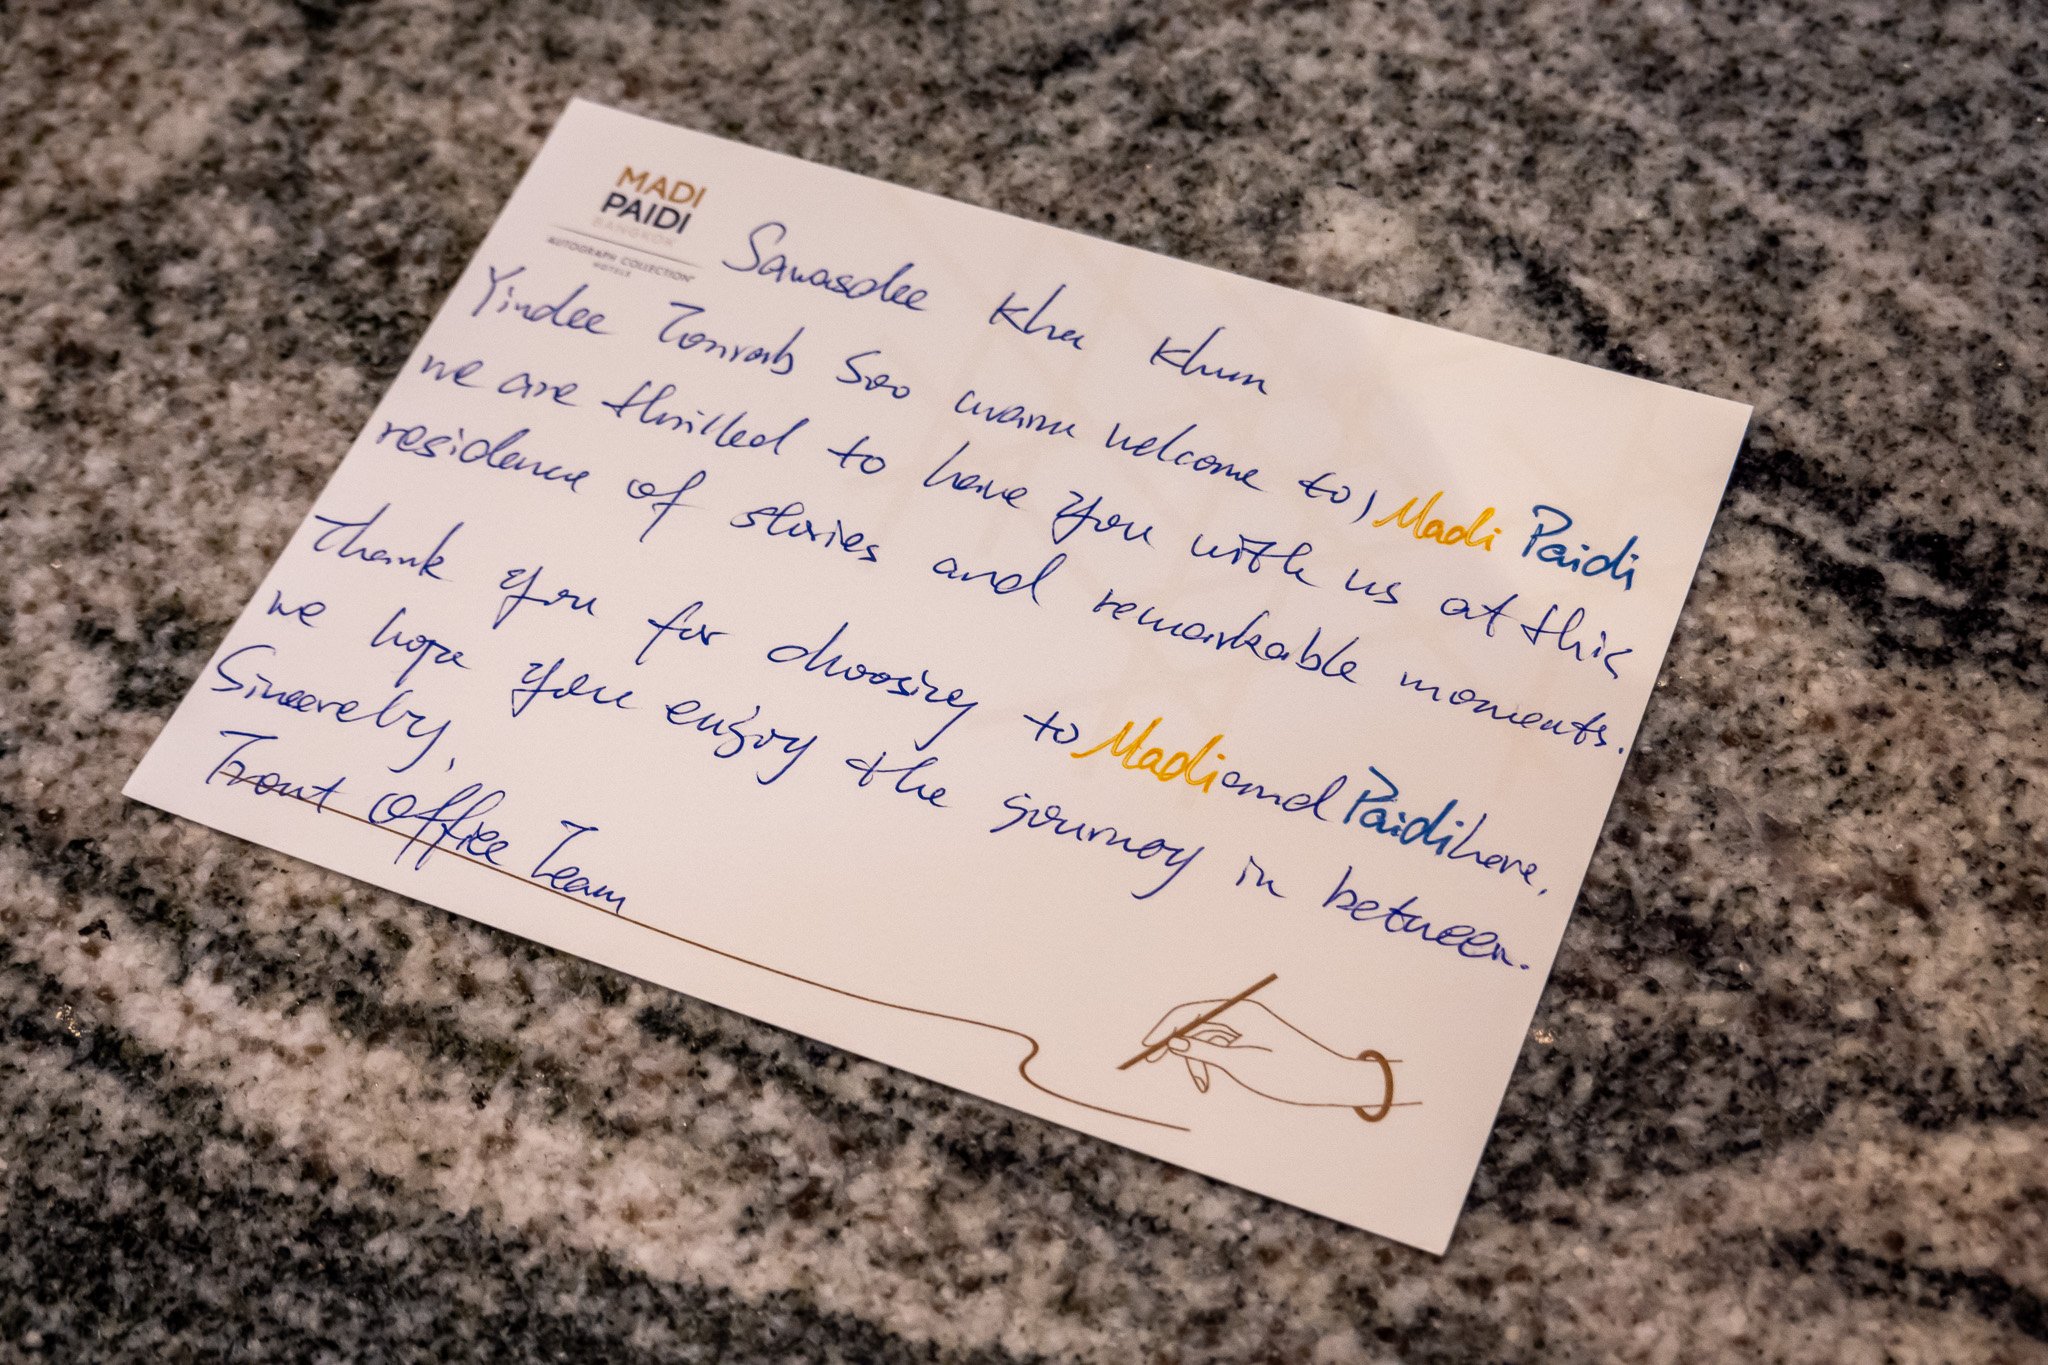 MADI
PAIDI
BANGKOK
AUTOGRAPH COLLECTION
HOTELS
Sawasdee Kha Khun
Yindee Tonrab Soo warm welcome to, Madi Paidi
we are thrilled to have you with us at this
residence of stories and remarkable moments.
Thank you for choosing to Madi and Paidi here,
we hope you enjoy the journey in between.
Sincerely,
Front Office Team